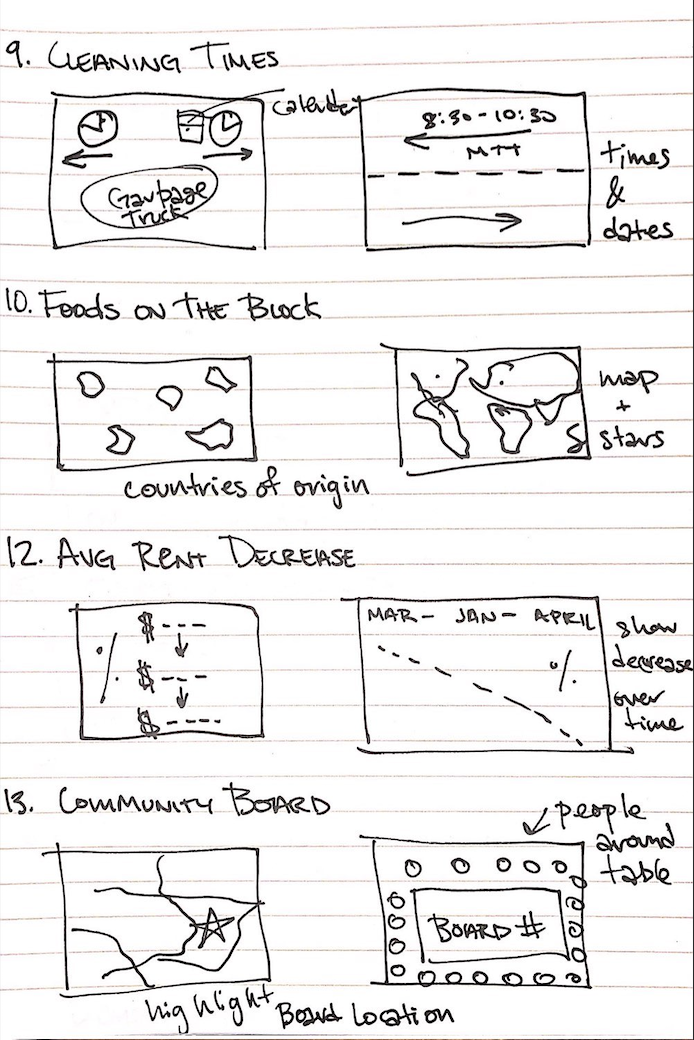 9. CLEANING TIMES
calendar
Garbage
Truck
8:30-10:30
MTT
times
&
dates
10. Foods ON THE BLOCK
map
+
stars
countries of origin
12. AVG RENT DECREASE
$ ----
% $ ---
$ -----
MAR- JAN- APRIL
%
show
decrease
over
time
13. COMMUNITY BOARD
people
around
table
BOARD #
highlight Board Location